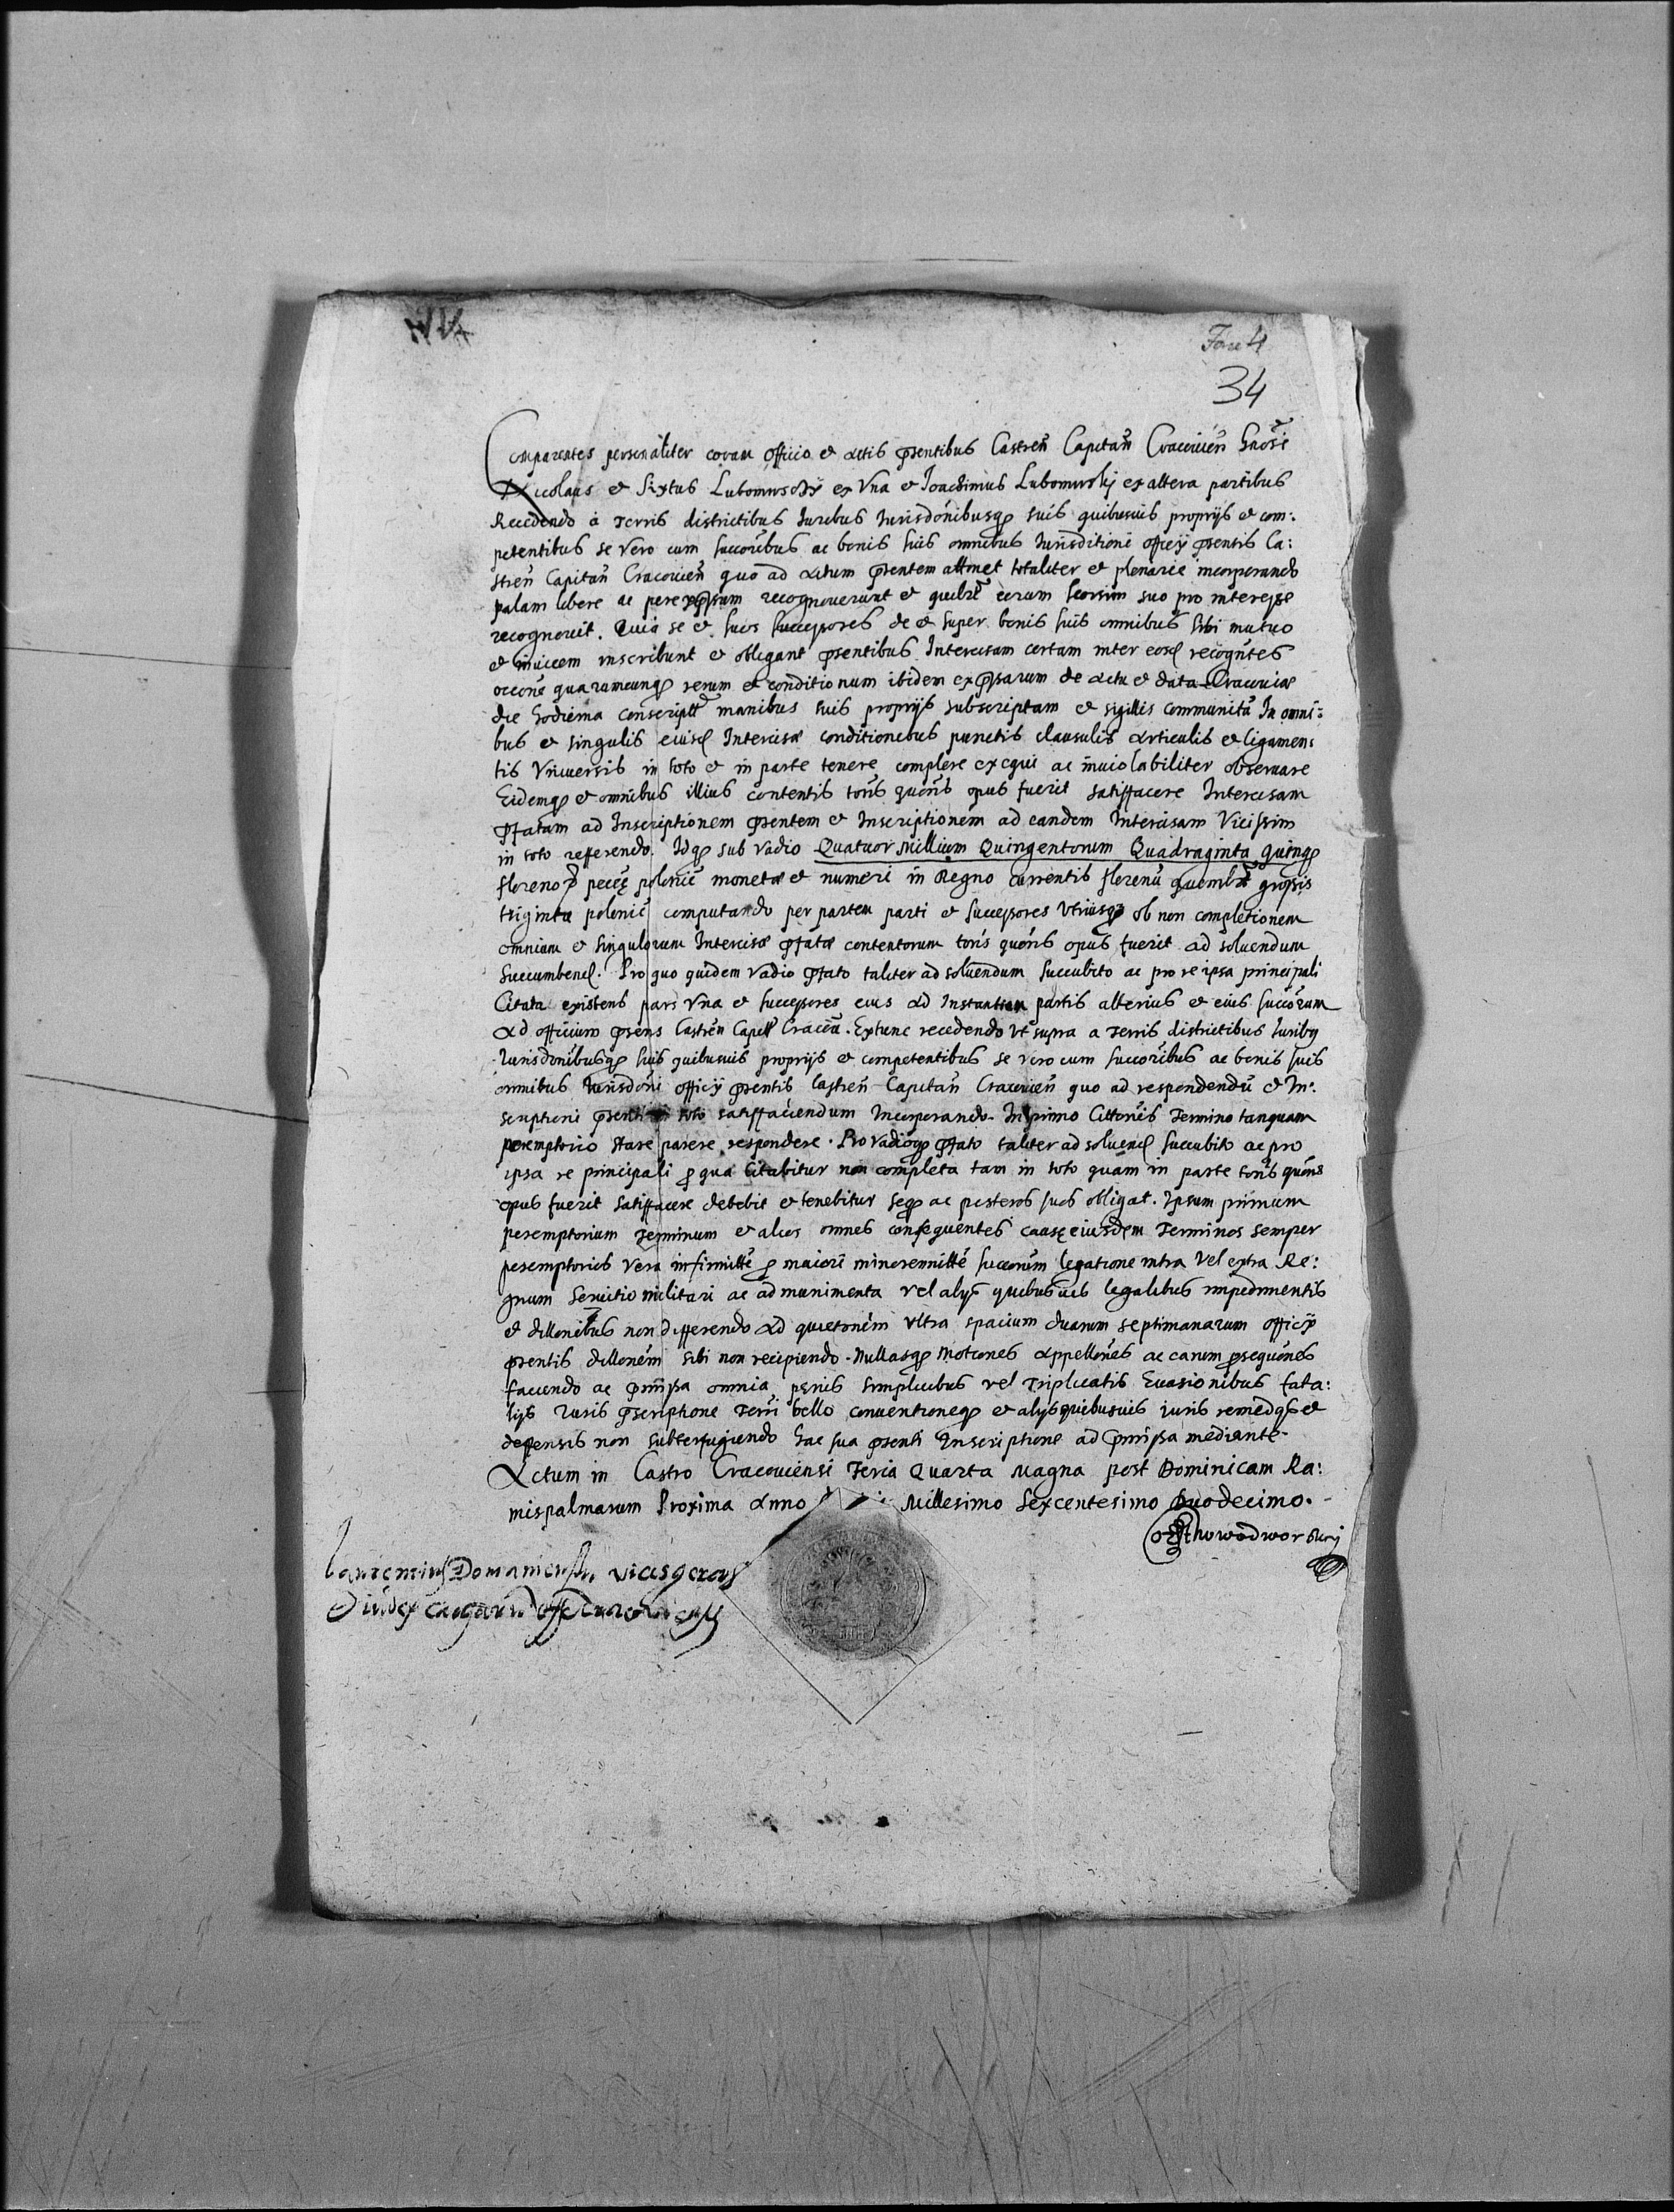 Fasc 4
34
Comparentes personaliter coram officio et actis pñtibus Castreñ Capitañ Cracovieñ Gnosi
Nicolaus et Sixtus Lubomirschÿ ex Vna et Joachimus Lubomirskÿ ex altera partibus
Recedendo à Terris districtibus Iuribus Iurisdōnibusq suis quibusuis proprijs et com:
petentibus se vero cum succoribus ac bonis suis omnibus Iurisditioni officÿ pñtis Ca:
streñ Capitañ Cracouieñ quo ad actum pñtem attinet totaliter et plenarie incorporando
palam libere ac per expssum recognouerunt et quilbt eorum seorsim suo pro interesse
recognouit. Quia se et suos successores de et super bonis suis omnibus sibi mutuo
et inuicem inscribunt et obligant pñtibus Intercisam certam inter eosd recogñtes
occōne quarumcunq rerum et conditionum ibidem expssarum de actu et data Cracouiæ
die hodierna conscriptā manibus suis proprijs subscriptam et sigillis communitā In omni:
bus et singulis eiusd Intercisæ conditionibus punctis clausulis articulis et ligamen:
tis Vniuersis in toto et in parte tenere complere exequi ac inuiolabiliter obseruare
Eidemq et omnibus illius contentis toñs quoñs opus fuerit satisfacere Intercisam
pfatam ad Inscriptionem pñtem et Inscriptionem ad eandem Intercisam Vicissim
in toto referendo. Idq sub vadio Quatuor Millium Quingentorum Quadraginta quinq
florenoʀ pecuę polonić monetæ et numeri in Regno currentis florenū quemlbt grossis
triginta polonić computando per partem parti et successores vtriusq ob non completionem
omnium et singulorum Intercisæ pfatæ contentorum toñs quoñs opus fuerit ad soluendum
succumbend. Pro quo quidem vadio pfato taliter ad soluendum succubito ac pro re ipsa principali
Citata existens pars Vna et successores eius ad Instantiam partis alterius et eius succorum
Ad officium pñs Castreñ Capitl Cracou. Extunc recedendo vt supra a Terris districtibus Iuribus
Iurisdōnibusq suis quibusuis proprijs et competentibus se vero cum succoribus ac bonis suis
omnibus Iurisdōni officÿ pñtis Castreñ Capitañ Cracouieñ quo ad respondendū et In:
scriptioni pñti in toto satisfaciendum Incorporando. In primo Cittōnis Termino tanquam
peremptorio stare parere respondere. Pro vadioq pfato taliter ad soluend succubito ac pro
ipsa re principali p qua Citabitur non completa tam in toto quam in parte toñs quoñs
opus fuerit satisfacere debebit et tenebitur seq ac posteros suos obligat. Ipsum primum
peremptorium Terminum et alios omnes consequentes causę eiusdem Terminos semper
peremptorios vera infirmitte p maiori minorennitte succorum legatione intra vel extra Re:
gnum seruitio militari ac ad munimenta vel alÿs quibusuis legalibus impedimentis
et dillonibus non differendo ad quietonem vltra spacium duarum septimanarum officÿ
pñtis dillonem sibi non recipiendo. Nullasq Motiones appellōnes ac earum psequōnes
faciendo ac pmissa omnia penis simplicibus vel Triplicatis Euasionibus fata:
lijs Iuris pscriptione Terri bello conuentioneq et alÿs quibusuis iuris remedijs et
deffensis non subterfugiendo hac sua pñti Inscriptione ad pmissa mediante.
Actum in Castro Cracouiensi Feria Quarta Magna post Dominicam Ra:
mispalmarum Proxima Anno Millesimo Sexcentesimo Duodecimo.
Laurentius vicesgerens